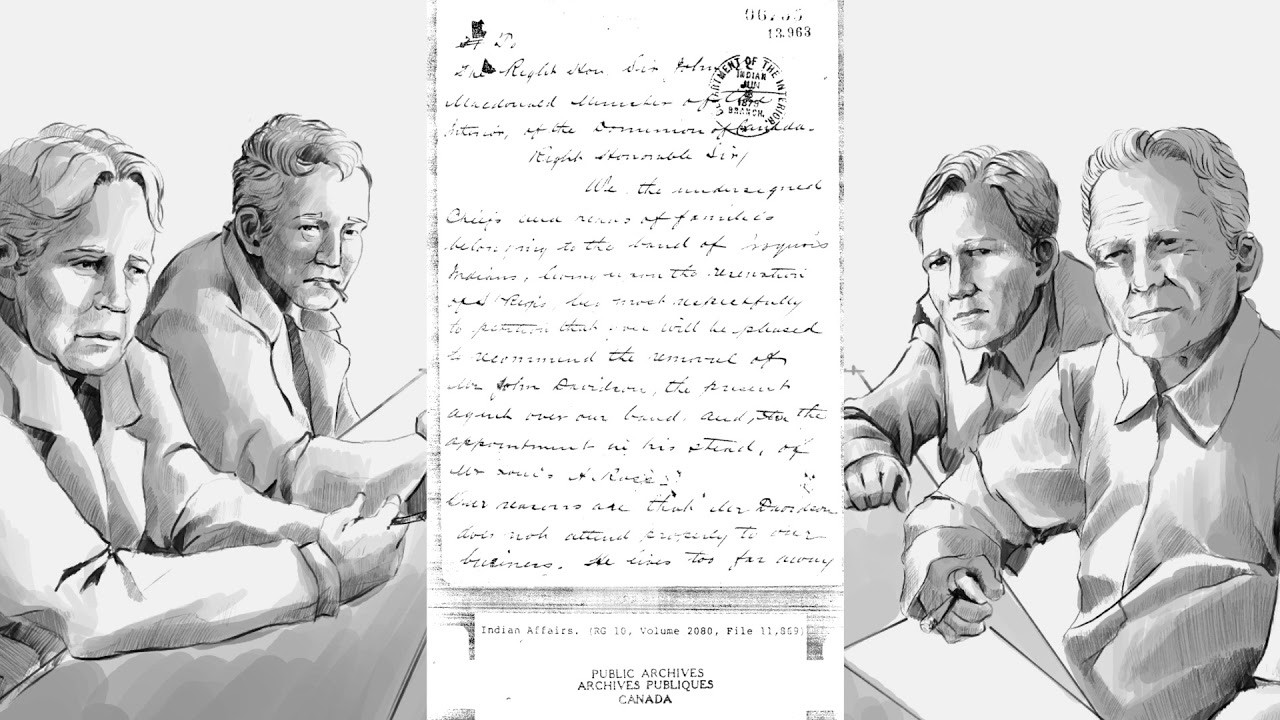 13.963
To
The Right Hon. Sir John
Macdonald Minister of the
Interior, of the Dominion of Canada.
DEPARTMENT OF THE INTERIOR
INDIAN
JUN
1879
BRANCH.
Right Honorable Sir,
We the undersigned
Chiefs and heads of families
belonging to the band of Iroquois
Indians, living upon the reservation
of St Regis, beg most respectfully
to petition that you will be pleased
to recommend the removal of
Mr John Davidson, the present
agent over our band. and, for the
appointment in his stead, of
Mr Louis A.
Our reasons are that Mr Davidson
does not attend properly to our
business. He lives too far away
Indian Affairs. (RG 10, Volume 2080, File 11,869)
PUBLIC ARCHIVES
ARCHIVES PUBLIQUES
CANADA